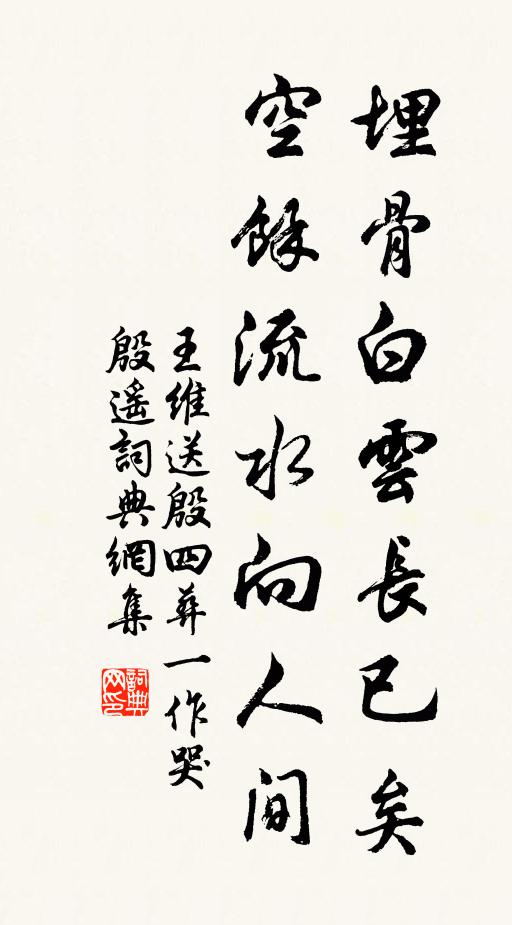 埋骨白雲長已矣
空餘流水向人间
王維送殷四葬一作哭
殷遥詞典網集
詞典
网印